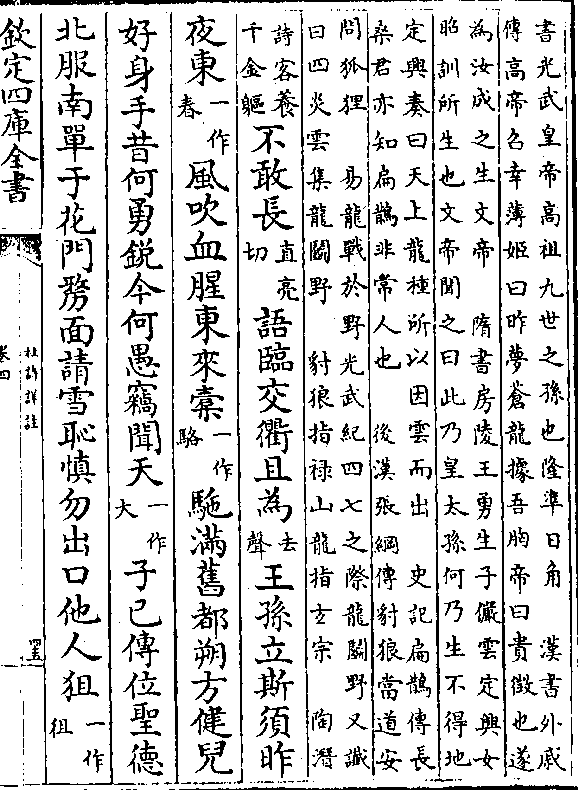 書光武皇帝高祖九世之孫也隆準日角　漢書外戚
傳高帝召幸薄姬曰昨夢蒼龍據吾胸帝曰貴徴也遂
為汝成之生文帝　隋書房陵王勇生子儼雲定興女
昭訓所生也文帝聞之曰此乃皇太孫何乃生不得地
定興奏曰天上龍種所以因雲而出　史記扁鵲傳長
桑君亦知扁鵲非常人也　後漢張綱傳豺狼當道安
問狐狸　易龍戰於野光武紀四七之際龍鬭野又讖
曰四炎雲集龍鬭野　豺狼指禄山龍指玄宗　陶潛
詩客養千金軀不敢長直亮切語臨交衢且為去聲王孫立斯須昨
夜東一作春風吹血腥東來橐一作駱駞滿舊都朔方健兒
好身手昔何勇鋭今何愚竊聞天一作大子已傳位聖德
北服南單于花門剺面請雪恥慎勿出口他人狙一作徂
欽定四庫全書
杜詩詳註
卷四
四五